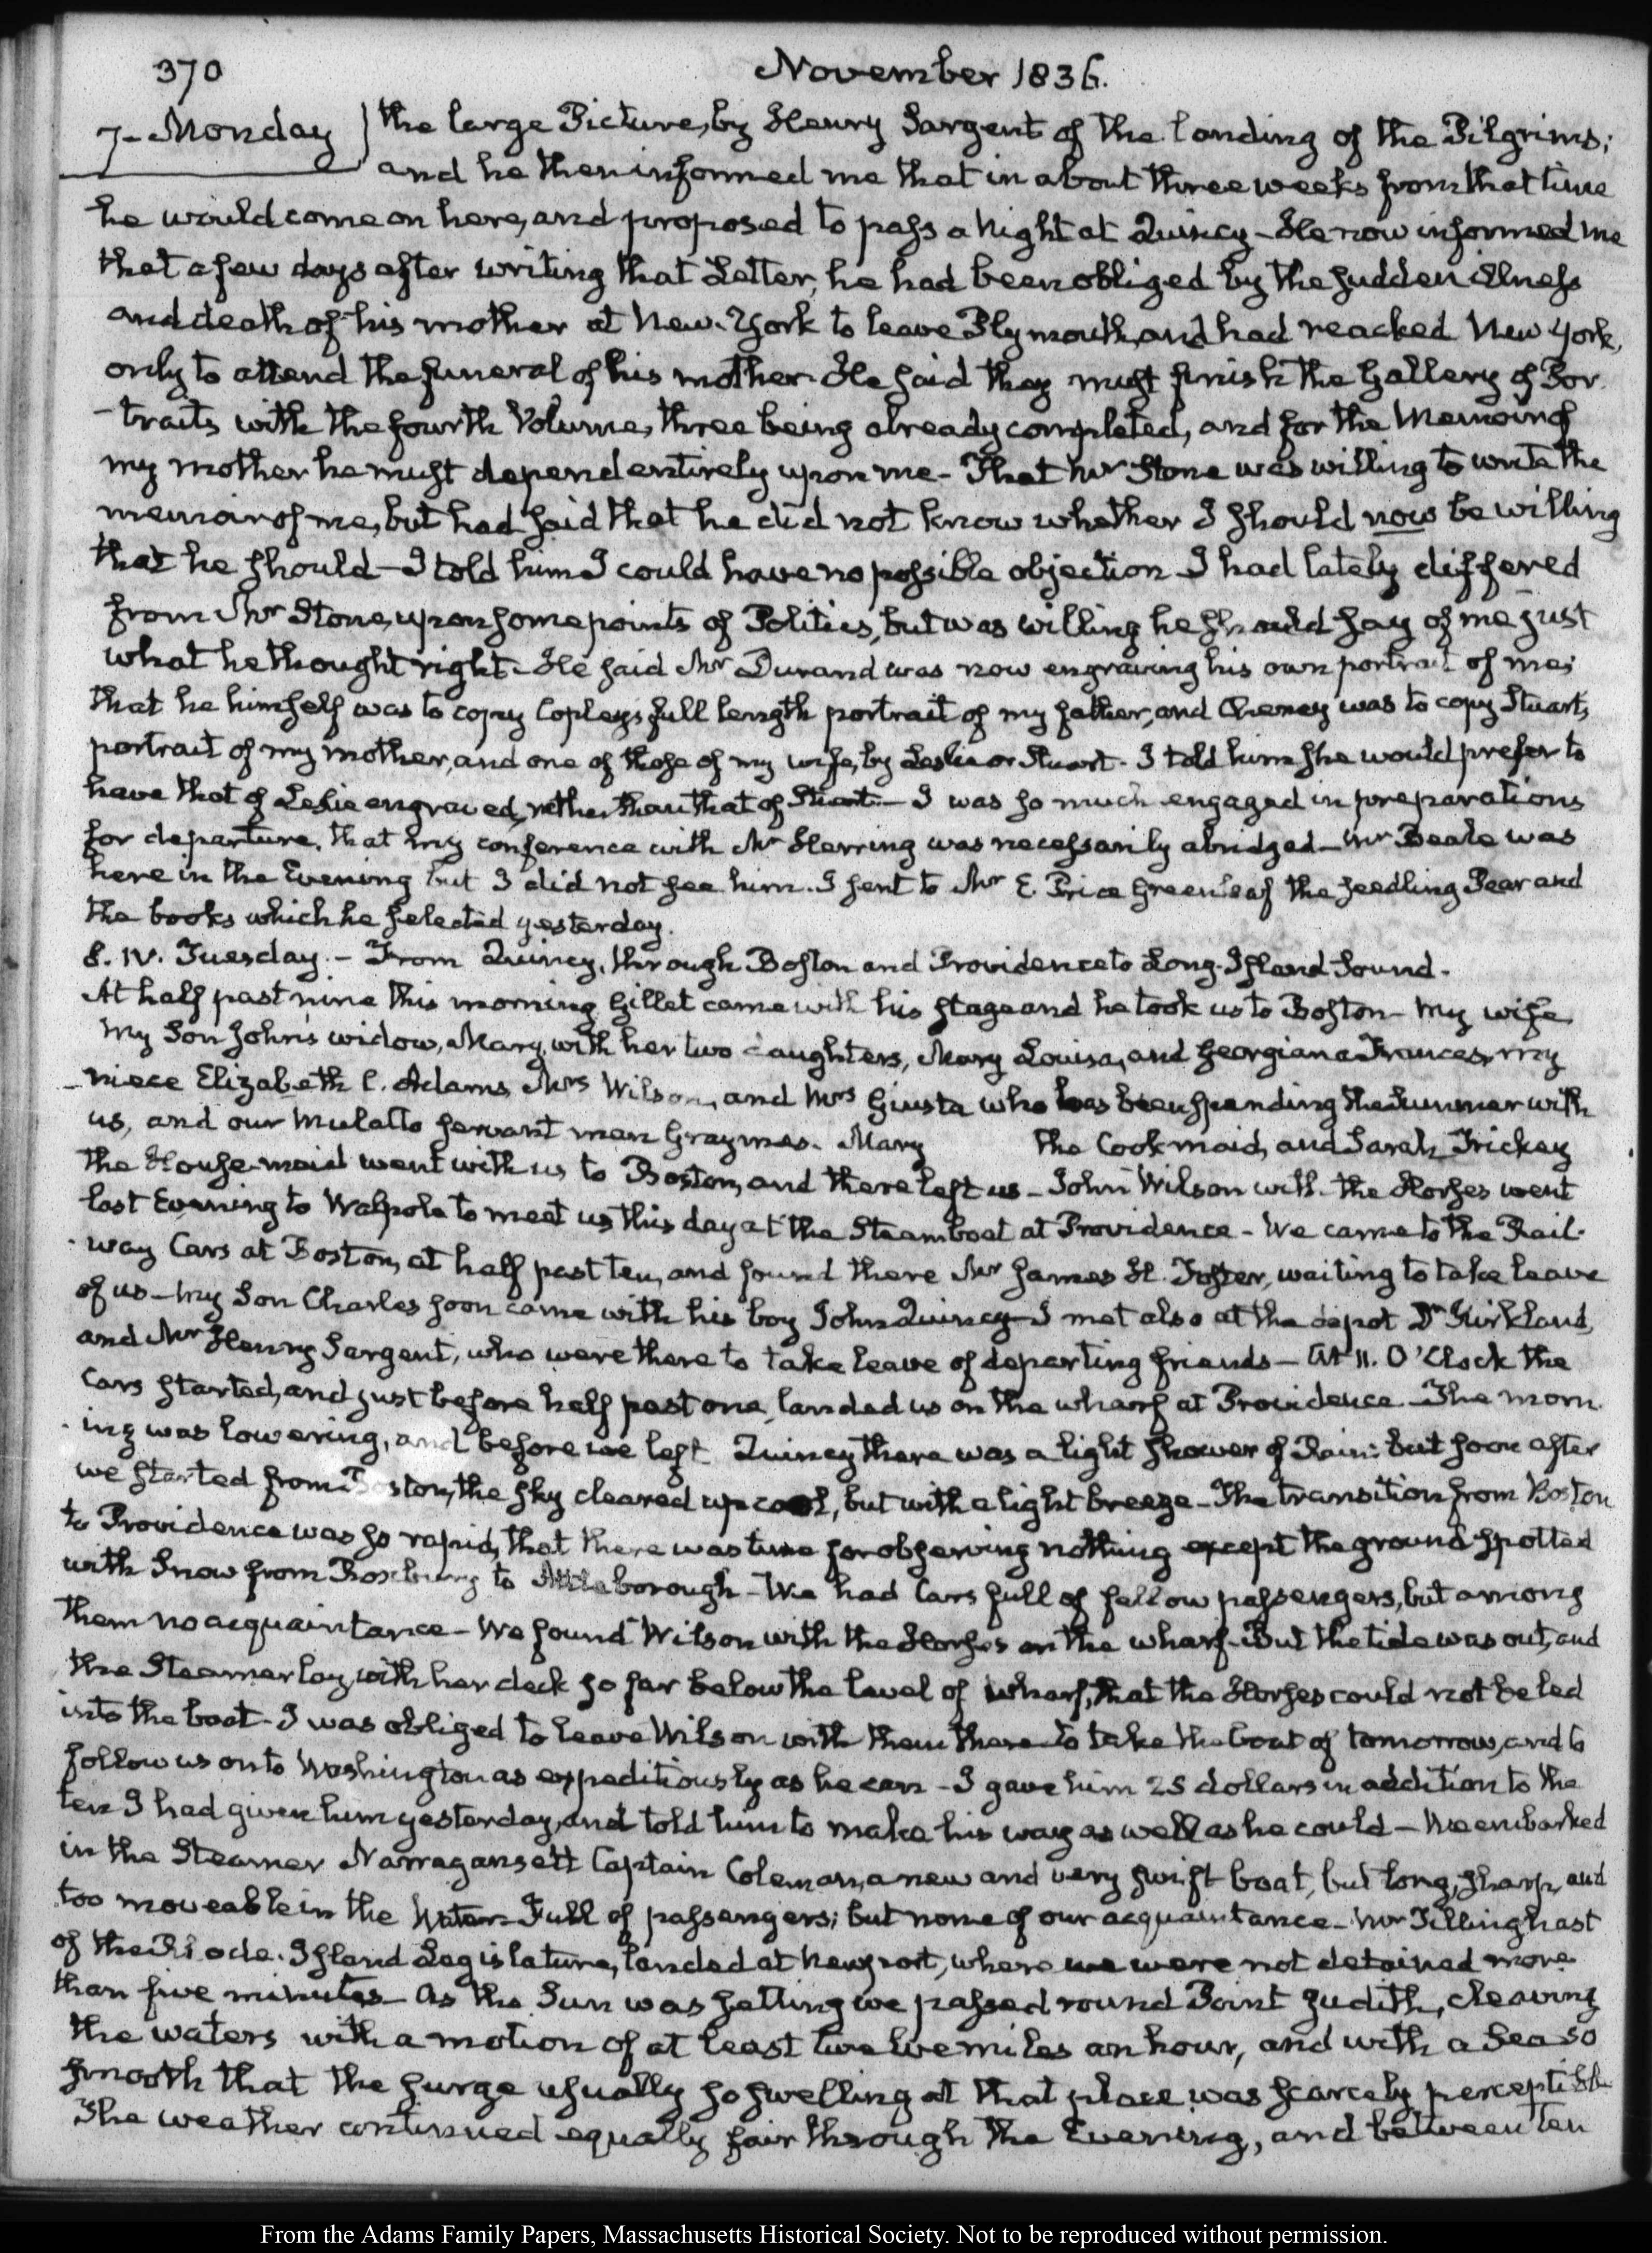 370
November 1836.
7. Monday
the large Picture, by Henry Sargent of the landing of the Pilgrims;
and he then informed me that in about three weeks from that time
he would come on here, and proposed to pass a Night at Quincy - He now informed me
that a few days after writing that Letter, he had been obliged by the sudden illness
and death of his mother at New-York to leave Plymouth, and had reached New York,
only to attend the funeral of his mother. He said they must finish the Gallery of Por-
-traits with the fourth Volume, three being already completed, and for the Memoir of
my mother he must depend entirely upon me - That Mr Stone was willing to write the
memoir of me, but had said that he did not know whether I should now be willing
that he should - I told him I could have no possible objection - I had lately differed
from Mr Stone, upon some points of Politics, but was willing he should say of me just
what he thought right - He said Mr Durand was now engraving his own portrait of me;
that he himself was to copy Copley's full length portrait of my father, and Cheney was to copy Stuart's
portrait of my mother, and one of those of my wife, by Leslie or Stuart - I told him she would prefer to
have that of Leslie engraved, rather than that of Stuart - I was so much engaged in preparations
for departure, that my conference with Mr Herring was necessarily abridged - Mr Beale was
here in the Evening but I did not see him. I sent to Mr E. Price Greenleaf the seedling Pear and
the books which he selected yesterday.
8. IV. Tuesday. - From Quincy, through Boston and Providence to Long-Island Sound.
At half past nine this morning Gillet came with his stage and he took us to Boston - My wife
My Son John's widow, Mary, with her two daughters, Mary Louisa, and Georgiana Frances, my
niece Elizabeth C. Adams, Mrs Wilson, and Mrs Giusta who has been spending the Summer with
us, and our Mulatto servant man Graymes. Mary the Cook maid, and Sarah Trickey
the House-maid went with us to Boston, and there left us - John Wilson with the Horses went
last Evening to Walpole to meet us this day at the Steamboat at Providence - We came to the Rail-
-way Cars at Boston, at half past ten, and found there Mr James H. Foster, waiting to take leave
of us - My Son Charles soon came with his boy John Quincy - I met also at the depot Dr Kirkland,
and Mr Henry Sargent, who were there to take leave of departing friends - At 11. O'Clock the
Cars started, and just before half past one, landed us on the wharf at Providence - The morn-
-ing was lowering, and before we left Quincy there was a light shower of Rain: but soon after
we started from Boston, the sky cleared up cool, but with a light breeze - The transition from Boston
to Providence was so rapid, that there was time for observing nothing except the ground spotted
with Snow from Roxbury to Attleborough - We had Cars full of fellow passengers, but among
them no acquaintance - We found Wilson with the Horses on the wharf - But the tide was out, and
the Steamer lay, with her deck so far below the level of wharf, that the Horses could not be led
into the boat - I was obliged to leave Wilson with them there to take the boat of tomorrow, and to
follow us on to Washington as expeditiously as he can - I gave him 25 dollars in addition to the
ten I had given him yesterday, and told him to make his way as well as he could - We embarked
in the Steamer Narragansett Captain Coleman, a new and very swift boat, but long, sharp, and
too moveable in the Water - Full of passengers; but none of our acquaintance - Mr Tillinghast
of the Rhode-Island Legislature, landed at Newport, where we were not detained more
than five minutes - As the Sun was setting we passed round Point Judith, cleaving
the waters with a motion of at least twelve miles an hour, and with a Sea so
smooth that the surge usually so swelling at that place was scarcely perceptible
The weather continued equally fair through the Evening, and between ten
From the Adams Family Papers, Massachusetts Historical Society. Not to be reproduced without permission.